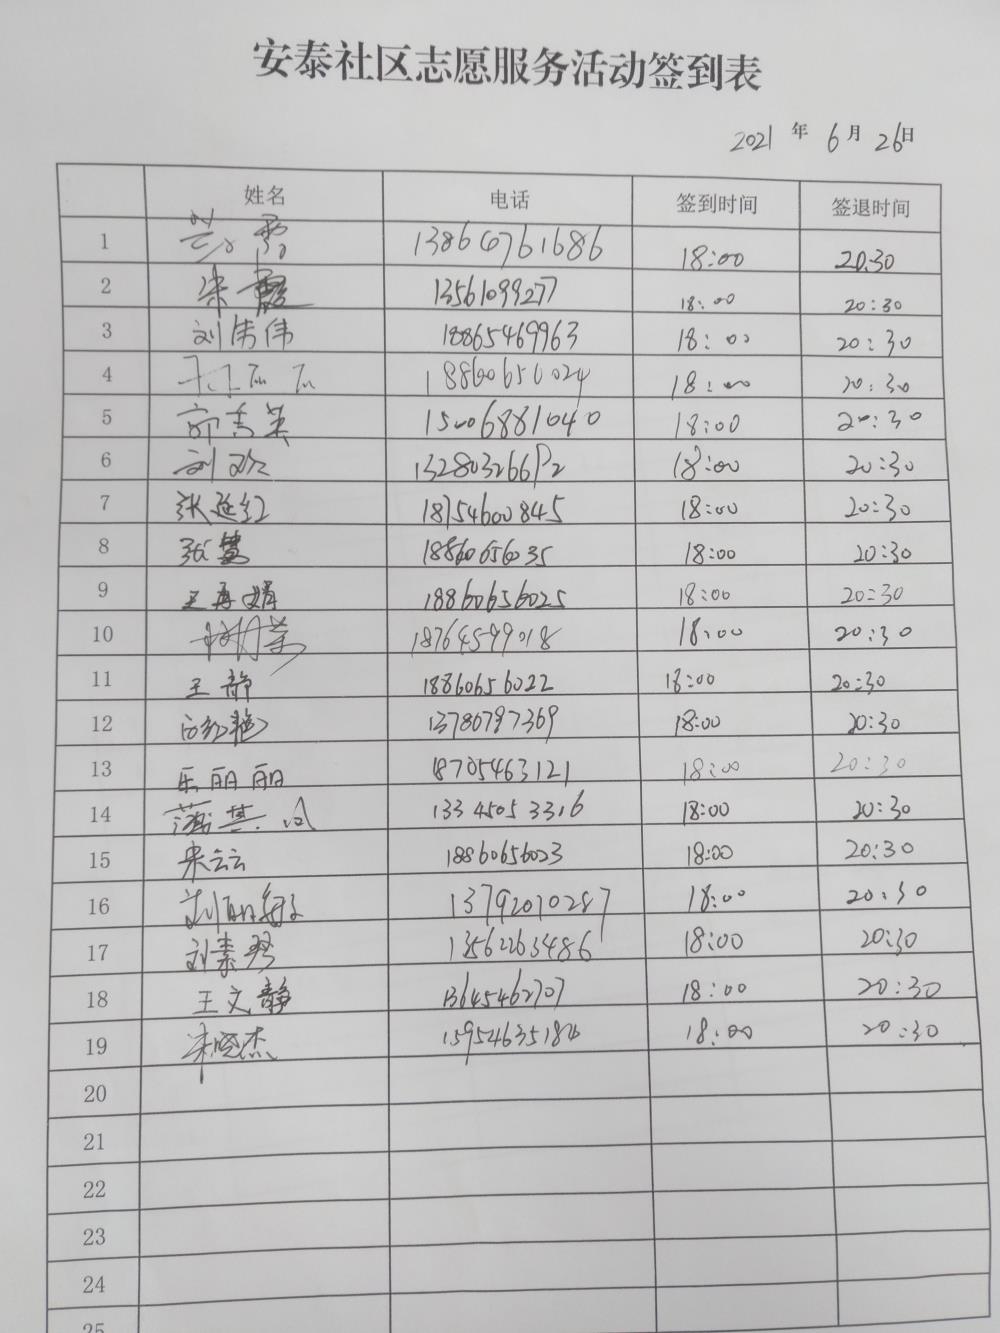 安泰社区志愿服务活动签到表
2021 年 6 月 26 日
姓名 电话 签到时间 签退时间
1 13864761686 18:00 20:30
2 宋霞 13561099277 18:00 20:30
3 刘伟伟 18865469963 18:00 20:30
4 18860656024 18:00 20:30
5 郭秀英 15006881040 18:00 20:30
6 刘欢 18:00 20:30
7 张延红 18154600845 18:00 20:30
8 张慧 18860656035 18:00 20:30
9 王再娟 18860656025 18:00 20:30
10 18764599018 18:00 20:30
11 王静 18860656022 18:00 20:30
12 13780797369 18:00 20:30
13 乐丽丽 18705463121 18:00 20:30
14 13345053316 18:00 20:30
15 宋云云 18860656023 18:00 20:30
16 13792070287 18:00 20:30
17 刘素琴 13562263486 18:00 20:30
18 王文静 13645462707 18:00 20:30
19 宋晓杰 18:00 20:30
20
21
22
23
24
25